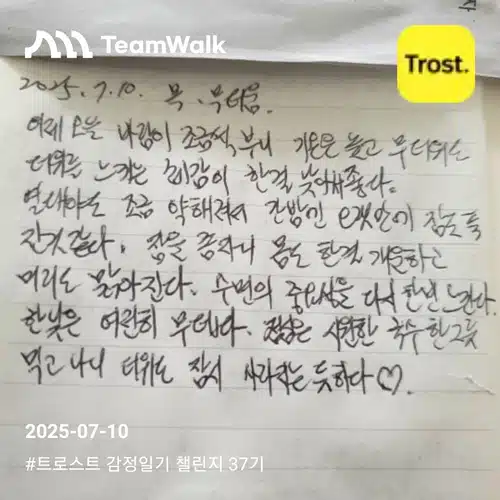 TeamWalk
Trost.
2025. 7. 10. 목. 무더움.
어제 오늘 바람이 조금씩 부니 기온은 높고 무더워도
더위를 느끼는 체감이 한결 낮아져 좋다.
열대야도 조금 약해져서 간밤엔 오랫만에 잠도 푹
잔것 같다. 잠을 푹자니 몸도 한결 개운하고
머리도 맑아진다. 수면의 중요성을 다시 한번 느낀다.
한낮은 여전히 무덥다. 점심은 시원한 국수 한그릇
먹고 나니 더위도 잠시 사라지는 듯하다♡.
2025-07-10
#트로스트 감정일기 챌린지 37기